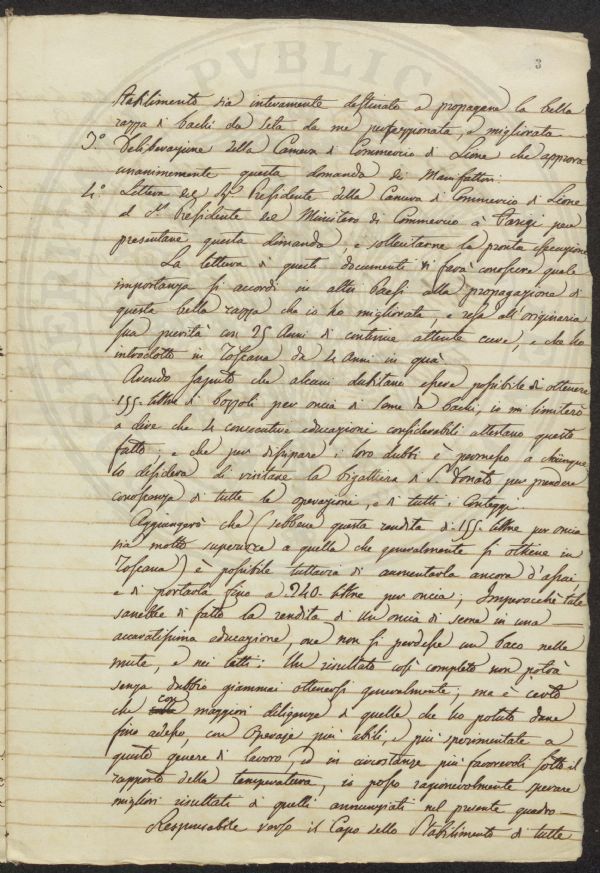 3
Stabilimento sia interamente destinato a propagare la bella
razza di bachi da seta da me perfezionata, e migliorata
3.° Deliberazione della Camera di Commercio di Lione che approva
unanimemente questa domanda dei Manifattori.
4.° Lettera del Sig.r Presidente della Camera di Commercio di Lione
al S.r Presidente del Ministero di Commercio à Parigi per
presentare questa dimanda, e sollecitarne la pronta esecuzione
La lettura di questi documenti Vi farà conoscere quale
importanza si accordi in altri Paesi alla propagazione di
questa bella razza che io ho migliorata, e resa all'originaria
sua purità con 25 Anni di continue attente cure, e che ho
introdotto in Toscana da 4 Anni in quà
Avendo saputo che alcuni dubitano essere possibile di ottenere
155 libbre di bozzoli per oncia di seme da bachi, io mi limiterò
a dire che 4 consecutive educazioni considerabili attestano questo
fatto; e che per dissipare i loro dubbi è permesso a chiunque
lo desidera di visitare la bigattiera di S.n Donato per prendere
conoscenza di tutte le operazioni, e di tutti i Conteggi.
Aggiungerò che (sebbene questa rendita di 155 libbre per oncia
sia molto superiore a quella che generalmente si ottiene in
Toscana) è possibile tuttavia di aumentarla ancora d'assai
e di portarla fino a 240 libbre per oncia; Imperocchè tale
sarebbe di fatto la rendita di Un'oncia di seme in una
accuratissima educazione, ove non si perdesse un baco nelle
mute, e nei letti: Un risultato così completo non potrà
senza dubbio giammai ottenersi generalmente; ma è certo
che con maggiori diligenze di quelle che ho potuto dare
fino adesso, con operaje più abili, e più sperimentate a
questo genere di lavoro, ed in circostanze più favorevoli sotto il
rapporto della temperatura, io posso ragionevolmente sperare
migliori risultati di quelli annunziati nel presente quadro
Responsabile verso il Capo dello Stabilimento di tutte